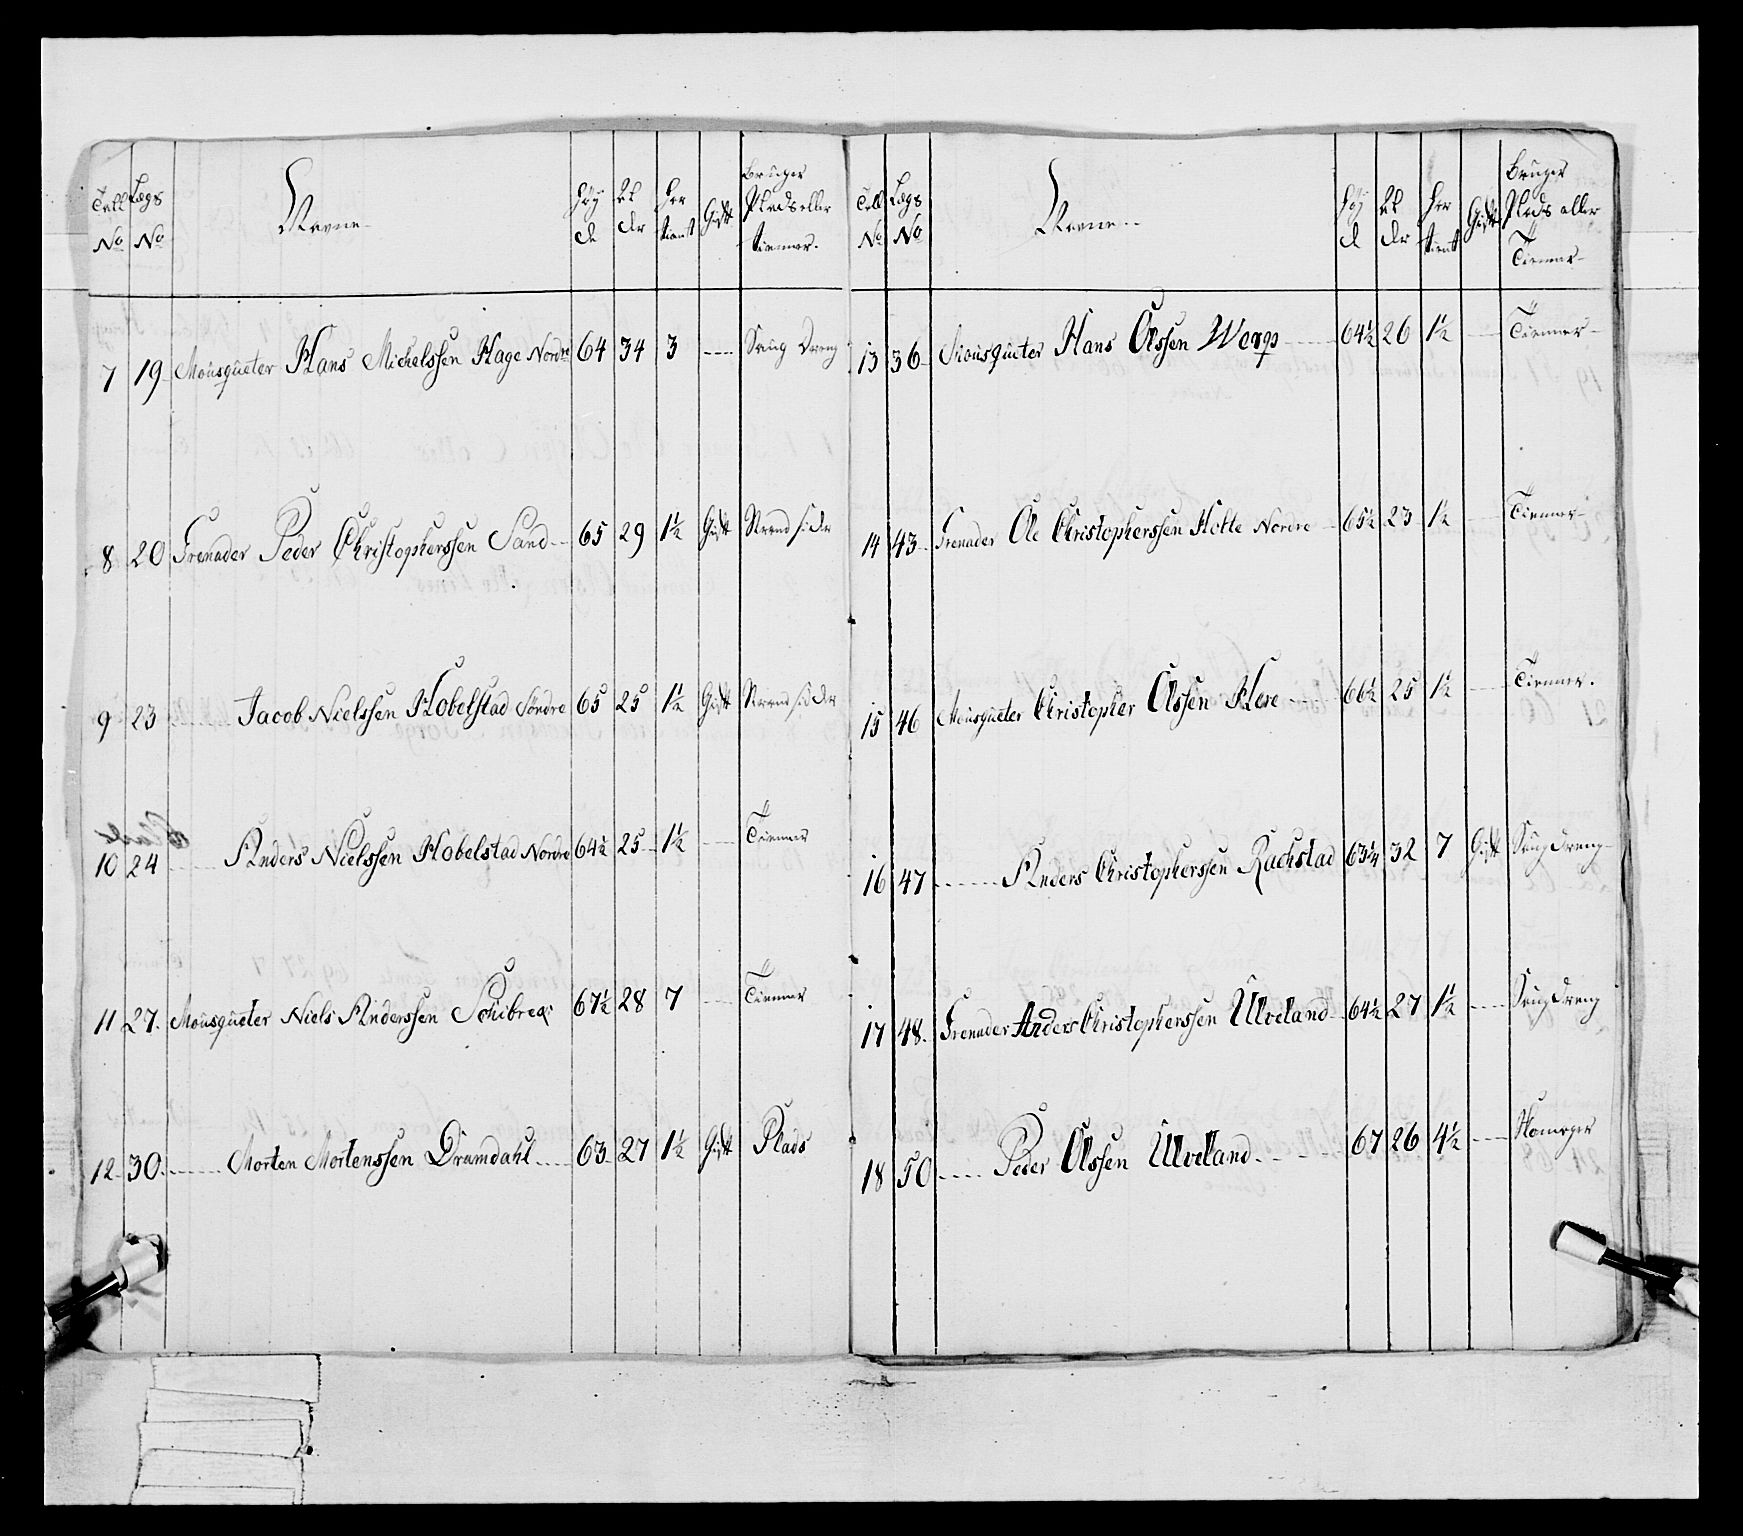 Tall No | Lægs No | Navne | Høyde | Alder | Fortient | Gift | Bruger Plads eller tienner
7 19 Mousqueter Hans Michelssen Hage Nordre 64 34 3 ---- Saug Dreng
8 20 Grenader Peder Christopherssen Sand 65 29 1½ Gift Strand sider
9 23 ---- Jacob Nielssen Hobelstad Söndre 65 25 1½ Gift Strand sider
10 24 ---- Anders Nielssen Hobelstad Nordre 64½ 25 1½ ---- Tienner
11 27. Mousqueter Niels Anderssen Schibreq 67½ 28 7 ---- Tienner
12 30. ---- Morten Mortenssen Dramdahl 63 27 1½ Gift Plads
Tall No | Lægs No | Navne | Høyde | Alder | Fortient | Gift | Bruger Plads eller Tienner
13 36 Mousqueter Hans Olssen Werp 64½ 26 1½ ---- Tienner
14 43 Grenader Ole Christopherssen Holte Nordre 65½ 23 1½ Tienner
15 46 Mousqueter Christopher Olssen Here 66½ 25 1½ ---- Tienner.
16 47 ---- Anders Christopherssen Rachstad 63¼ 32 7 Gift Saug Dreng
17 48. Grenader Anders Christopherssen Ulveland 64½ 27 1½ ---- Saug Dreng
18 50 ---- Peder Olssen Ulveland 67 26 4½ ----